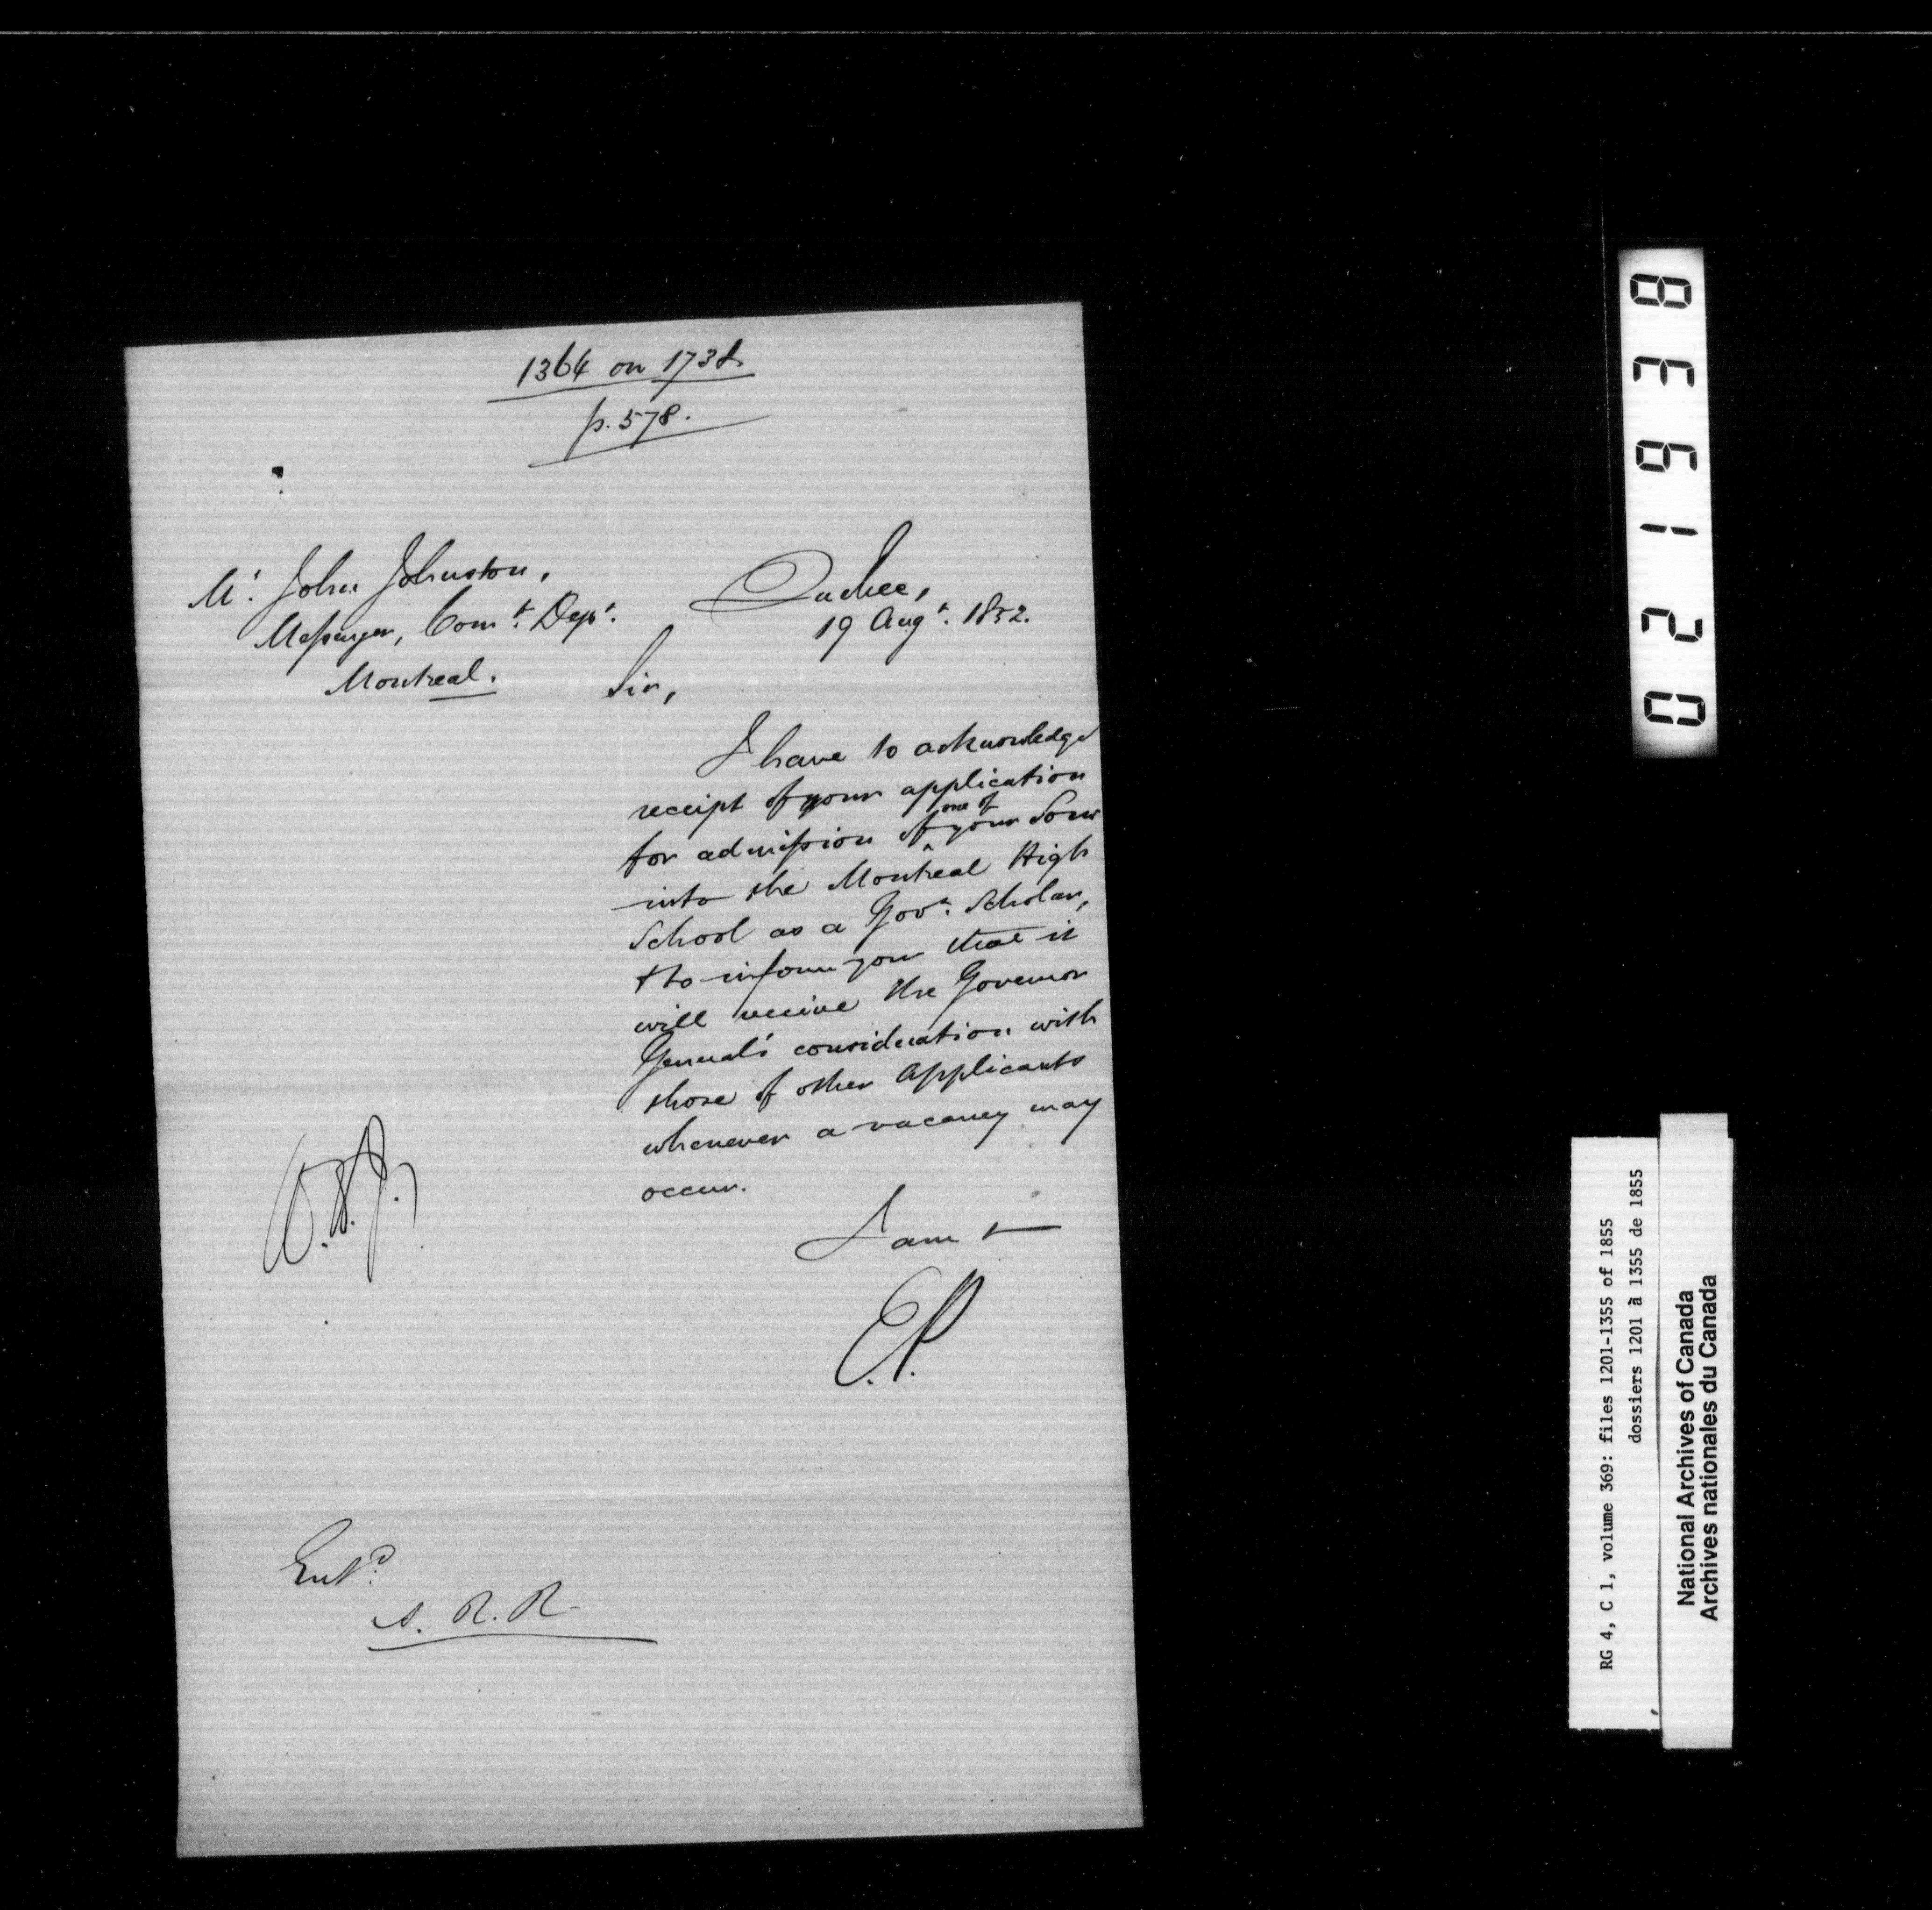 1364 on 1738.
p. 578.
Mr. John Johnston,
Messenger, Comt. Dept.
Montreal.
Quebec,
19 Augt. 1852.
Sir,
I have to acknowledge
receipt of your application
for admission of one of your Sons
into the Montreal High
School as a Govt. Scholar,
& to inform you that it
will receive the Governor
General's consideration with
those of other applicants
whenever a vacancy may
occur.
I am &
E.P.
Entd.
A. R. R.
833120
RG 4, C 1, volume 369: files 1201-1355 of 1855
dossiers 1201 à 1355 de 1855
National Archives of Canada
Archives nationales du Canada